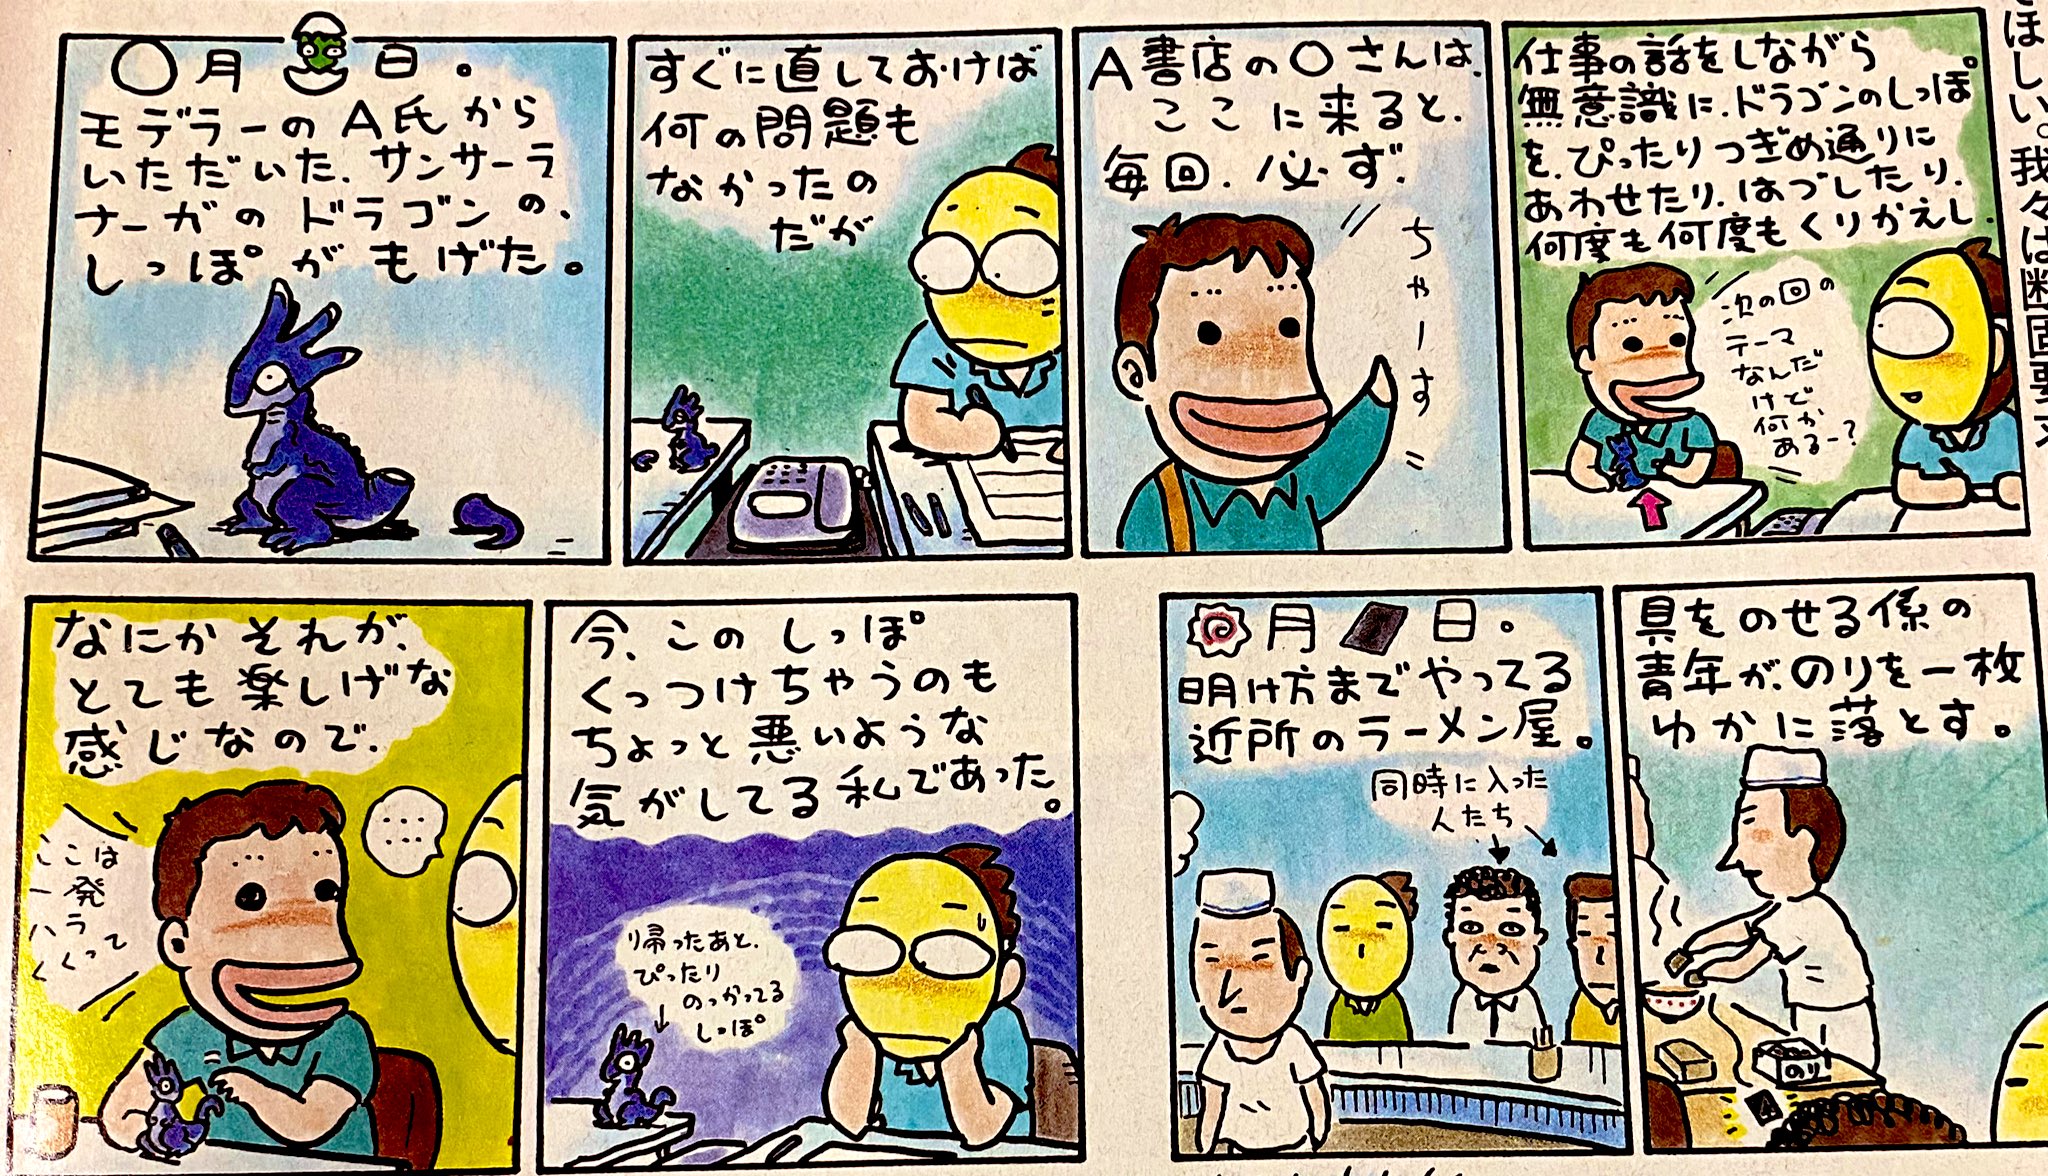 〇月 日。
モデラーのA氏から
いただいた、サンサーラ
ナーガのドラゴンの、
しっぽがもげた。
すぐに直しておけば
何の問題も
なかったの
だが
A書店の〇さんは、
ここに来ると、
毎回、必ず、
ちゃーす
仕事の話をしながら
無意識に、ドラゴンのしっぽ
を、ぴったりつぎめ通りに
あわせたり、はづしたり、
何度も何度もくりかえし、
次の回の
テーマ
なんだ
けど
何か
あるー?
なにかそれが、
とても楽しげな
感じなので、
ここは
一発
ハラ
くくって
……
今、このしっぽ
くっつけちゃうのも
ちょっと悪いような
気がしてる私であった。
り帰ったあと、
ぴったり
のっかってる
しっぽ
月 日。
明け方までやってる
近所のラーメン屋。
同時に入った
人たち
具をのせる係の
青年が、のりを一枚
ゆかに落とす。
のり
ほしい。我々は断固要